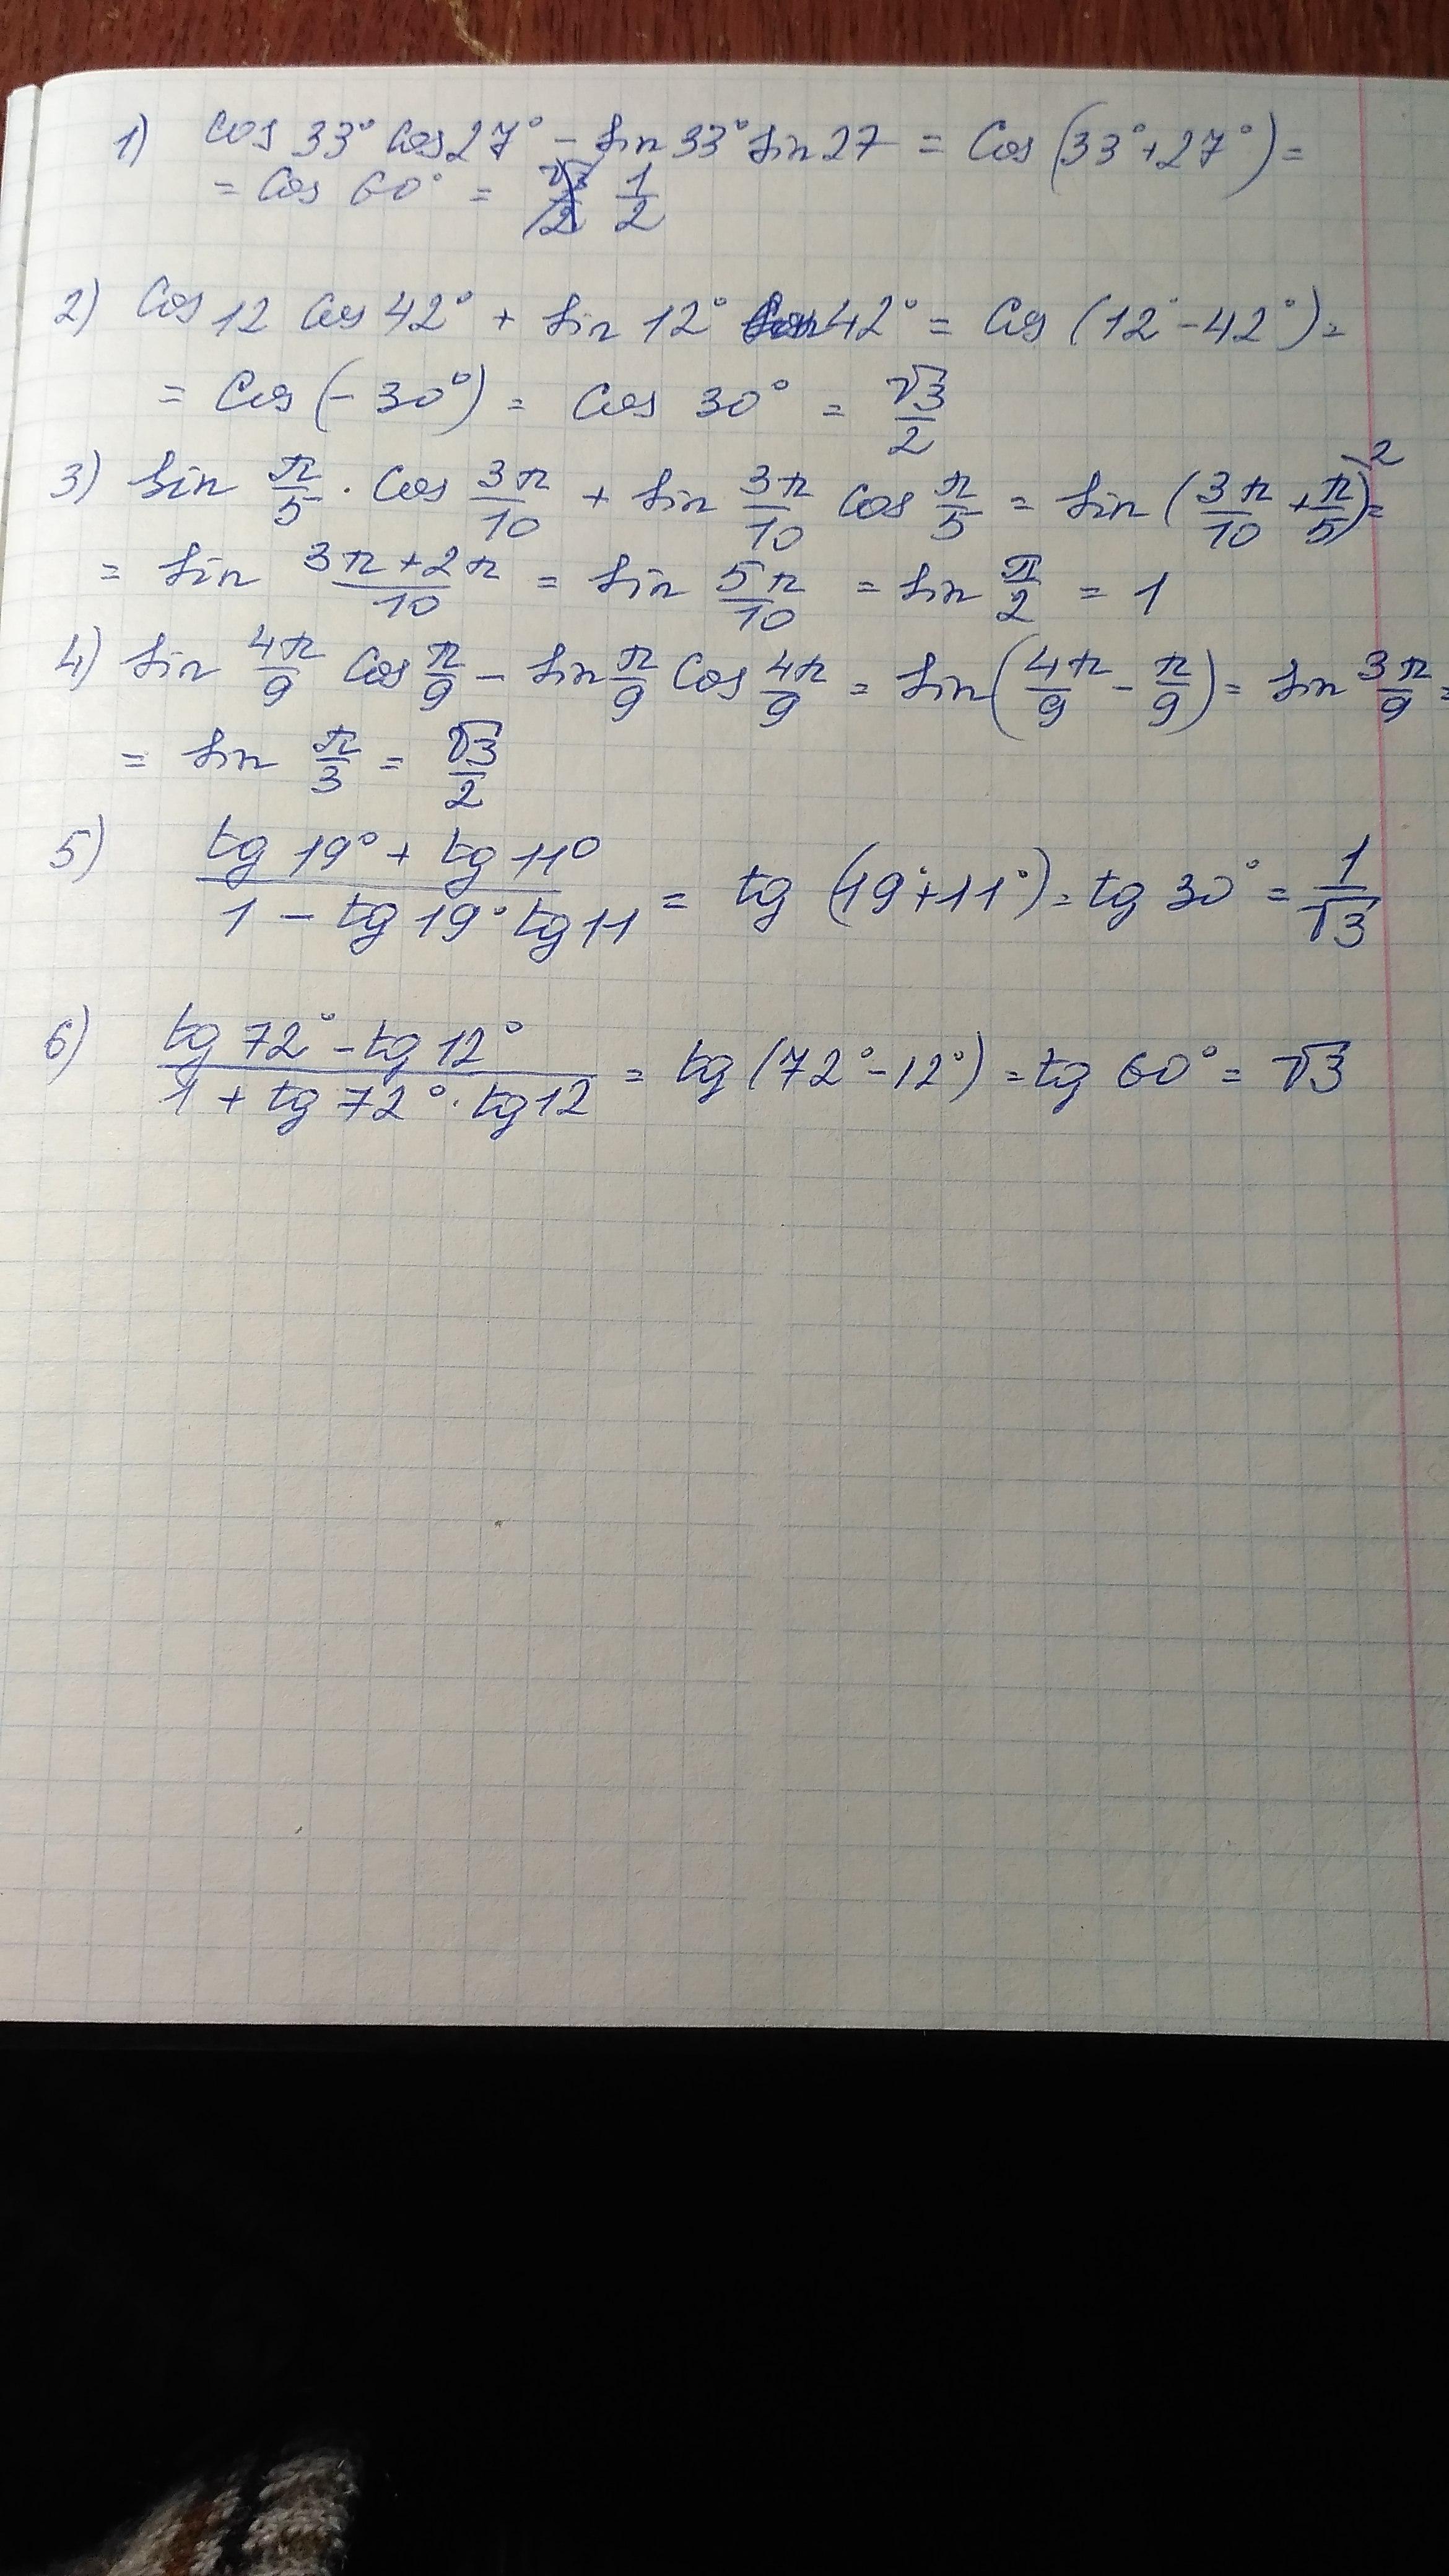 1) cos 33° cos 27° - sin 33° sin 27 = cos (33° + 27°) =
= cos 60° = 1/2
2) cos 12 cos 42° + sin 12° sin 42° = cos (12° - 42°) =
= cos (- 30°) = cos 30° = √3/2
3) sin π/5 · cos 3π/10 + sin 3π/10 cos π/5 = sin (3π/10 + π/5\2) =
= sin (3π+2π)/10 = sin 5π/10 = sin π/2 = 1
4) sin 4π/9 cos π/9 - sin π/9 cos 4π/9 = sin (4π/9 - π/9) = sin 3π/9 =
= sin π/3 = √3/2
5) (tg 19° + tg 11°)/(1 - tg 19° tg 11) = tg (19° + 11°) = tg 30° = 1/√3
6) (tg 72° - tg 12°)/(1 + tg 72° · tg 12) = tg (72° - 12°) = tg 60° = √3